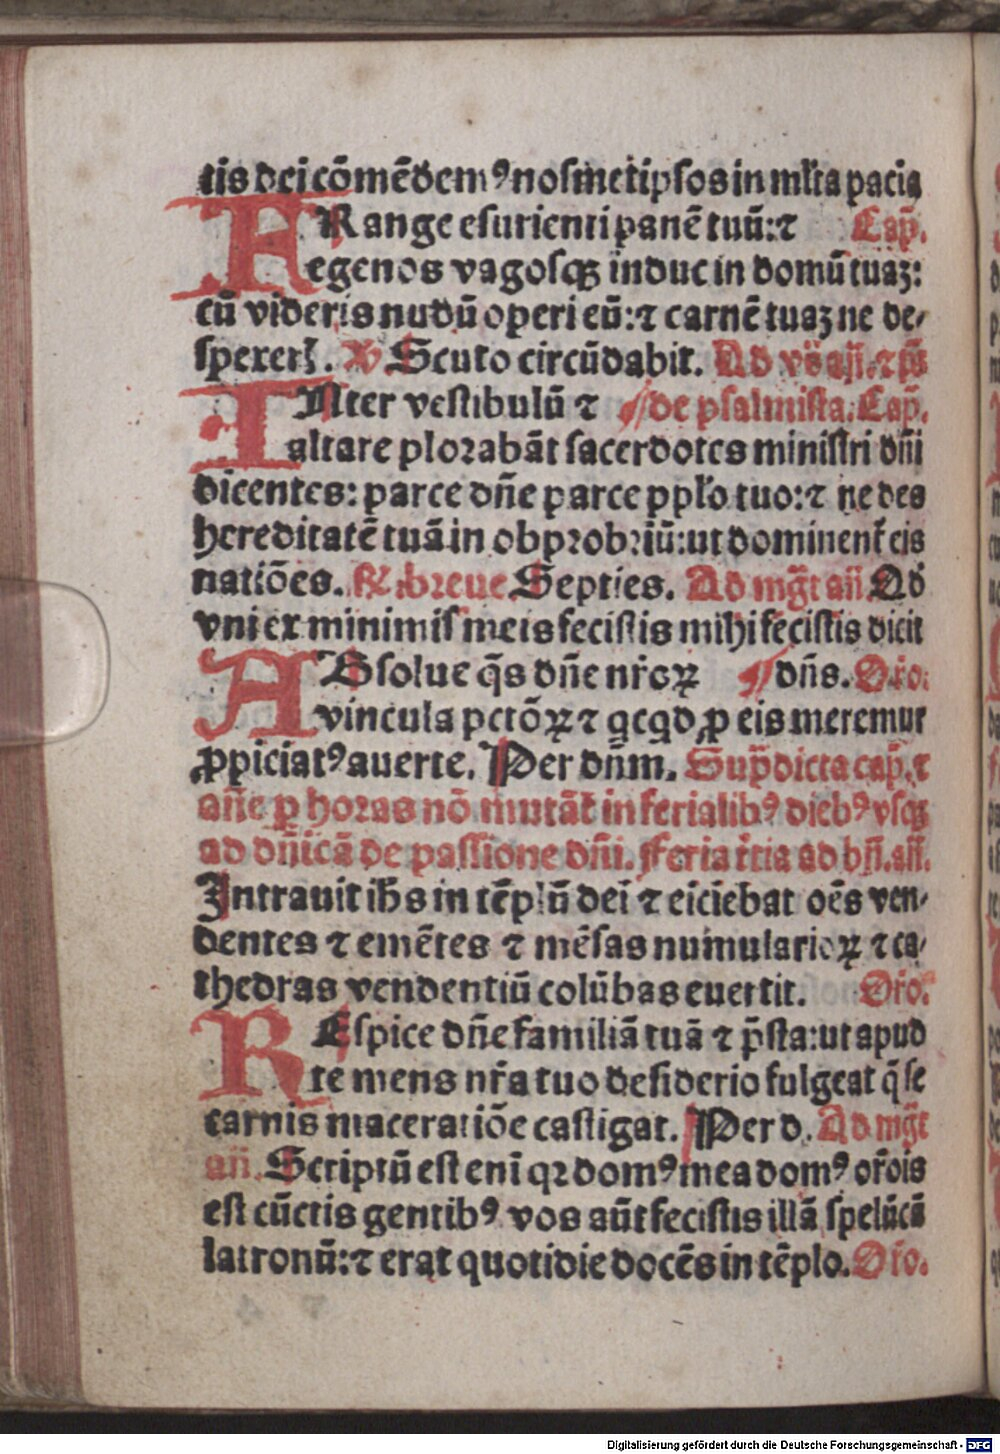 tis dei cōmēdemꝰ nosmetipsos in ml̄ta pacia
FRange esurienti panē tuū: ⁊ Cap̄.
egenos vagosqꝫ induc in domū tuaꝫ:
cū videris nudū operi eū: ⁊ carnē tuaꝫ ne de⸗
spexerꝭ. ℣ Scuto circūdabit. Ad
INter vestibulū ⁊ de psalmista. Cap̄.
altare plorabāt sacerdotes ministri dn̄i
dicentes: parce dn̄e parce ppl'o tuo: ⁊ ne des
hereditatē tuā in obprobriū: ut dominent̄ eis
natiōes. ℟ breue Septies. Ad mg̅t an̄ Qd
vni ex minimis meis fecistis mihi fecistis dicit
ABsolue q̄s dn̄e nr̄oꝝ ¶ dn̄s. Or̄o.
vincula pctōꝝ ⁊ qcqd ꝓ eis meremur
ꝓpiciatꝰ auerte. Per dn̄m. Sup̄dicta cap̄. ⁊
an̄e p horas nō mutāt̄ in ferialibꝰ diebꝰ vsqꝫ
ad dn̄icā de passione dn̄i. Feria t'tia ad bn̄. an̄.
Intrauit ih̄s in tēplū dei ⁊ eiciebat oēs ven⸗
dentes ⁊ emētes ⁊ mēsas numularioꝝ ⁊ ca⸗
thedras vendentiū colūbas euertit. Or̄o.
REspice dn̄e familiā tuā ⁊ p̄sta: ut apud
te mens nr̄a tuo desiderio fulgeat q̄ se
carnis maceratiōe castigat. Per d. Ad mg̅t
an̄. Scriptū est eni qꝛ domꝰ mea domꝰ or̄ois
est cūctis gentibꝰ vos aūt fecistis illā spelūcā
latronū: ⁊ erat quotidie docēs in tēplo. Or̄o.
Digitalisierung gefördert durch die Deutsche Forschungsgemeinschaft - DFG